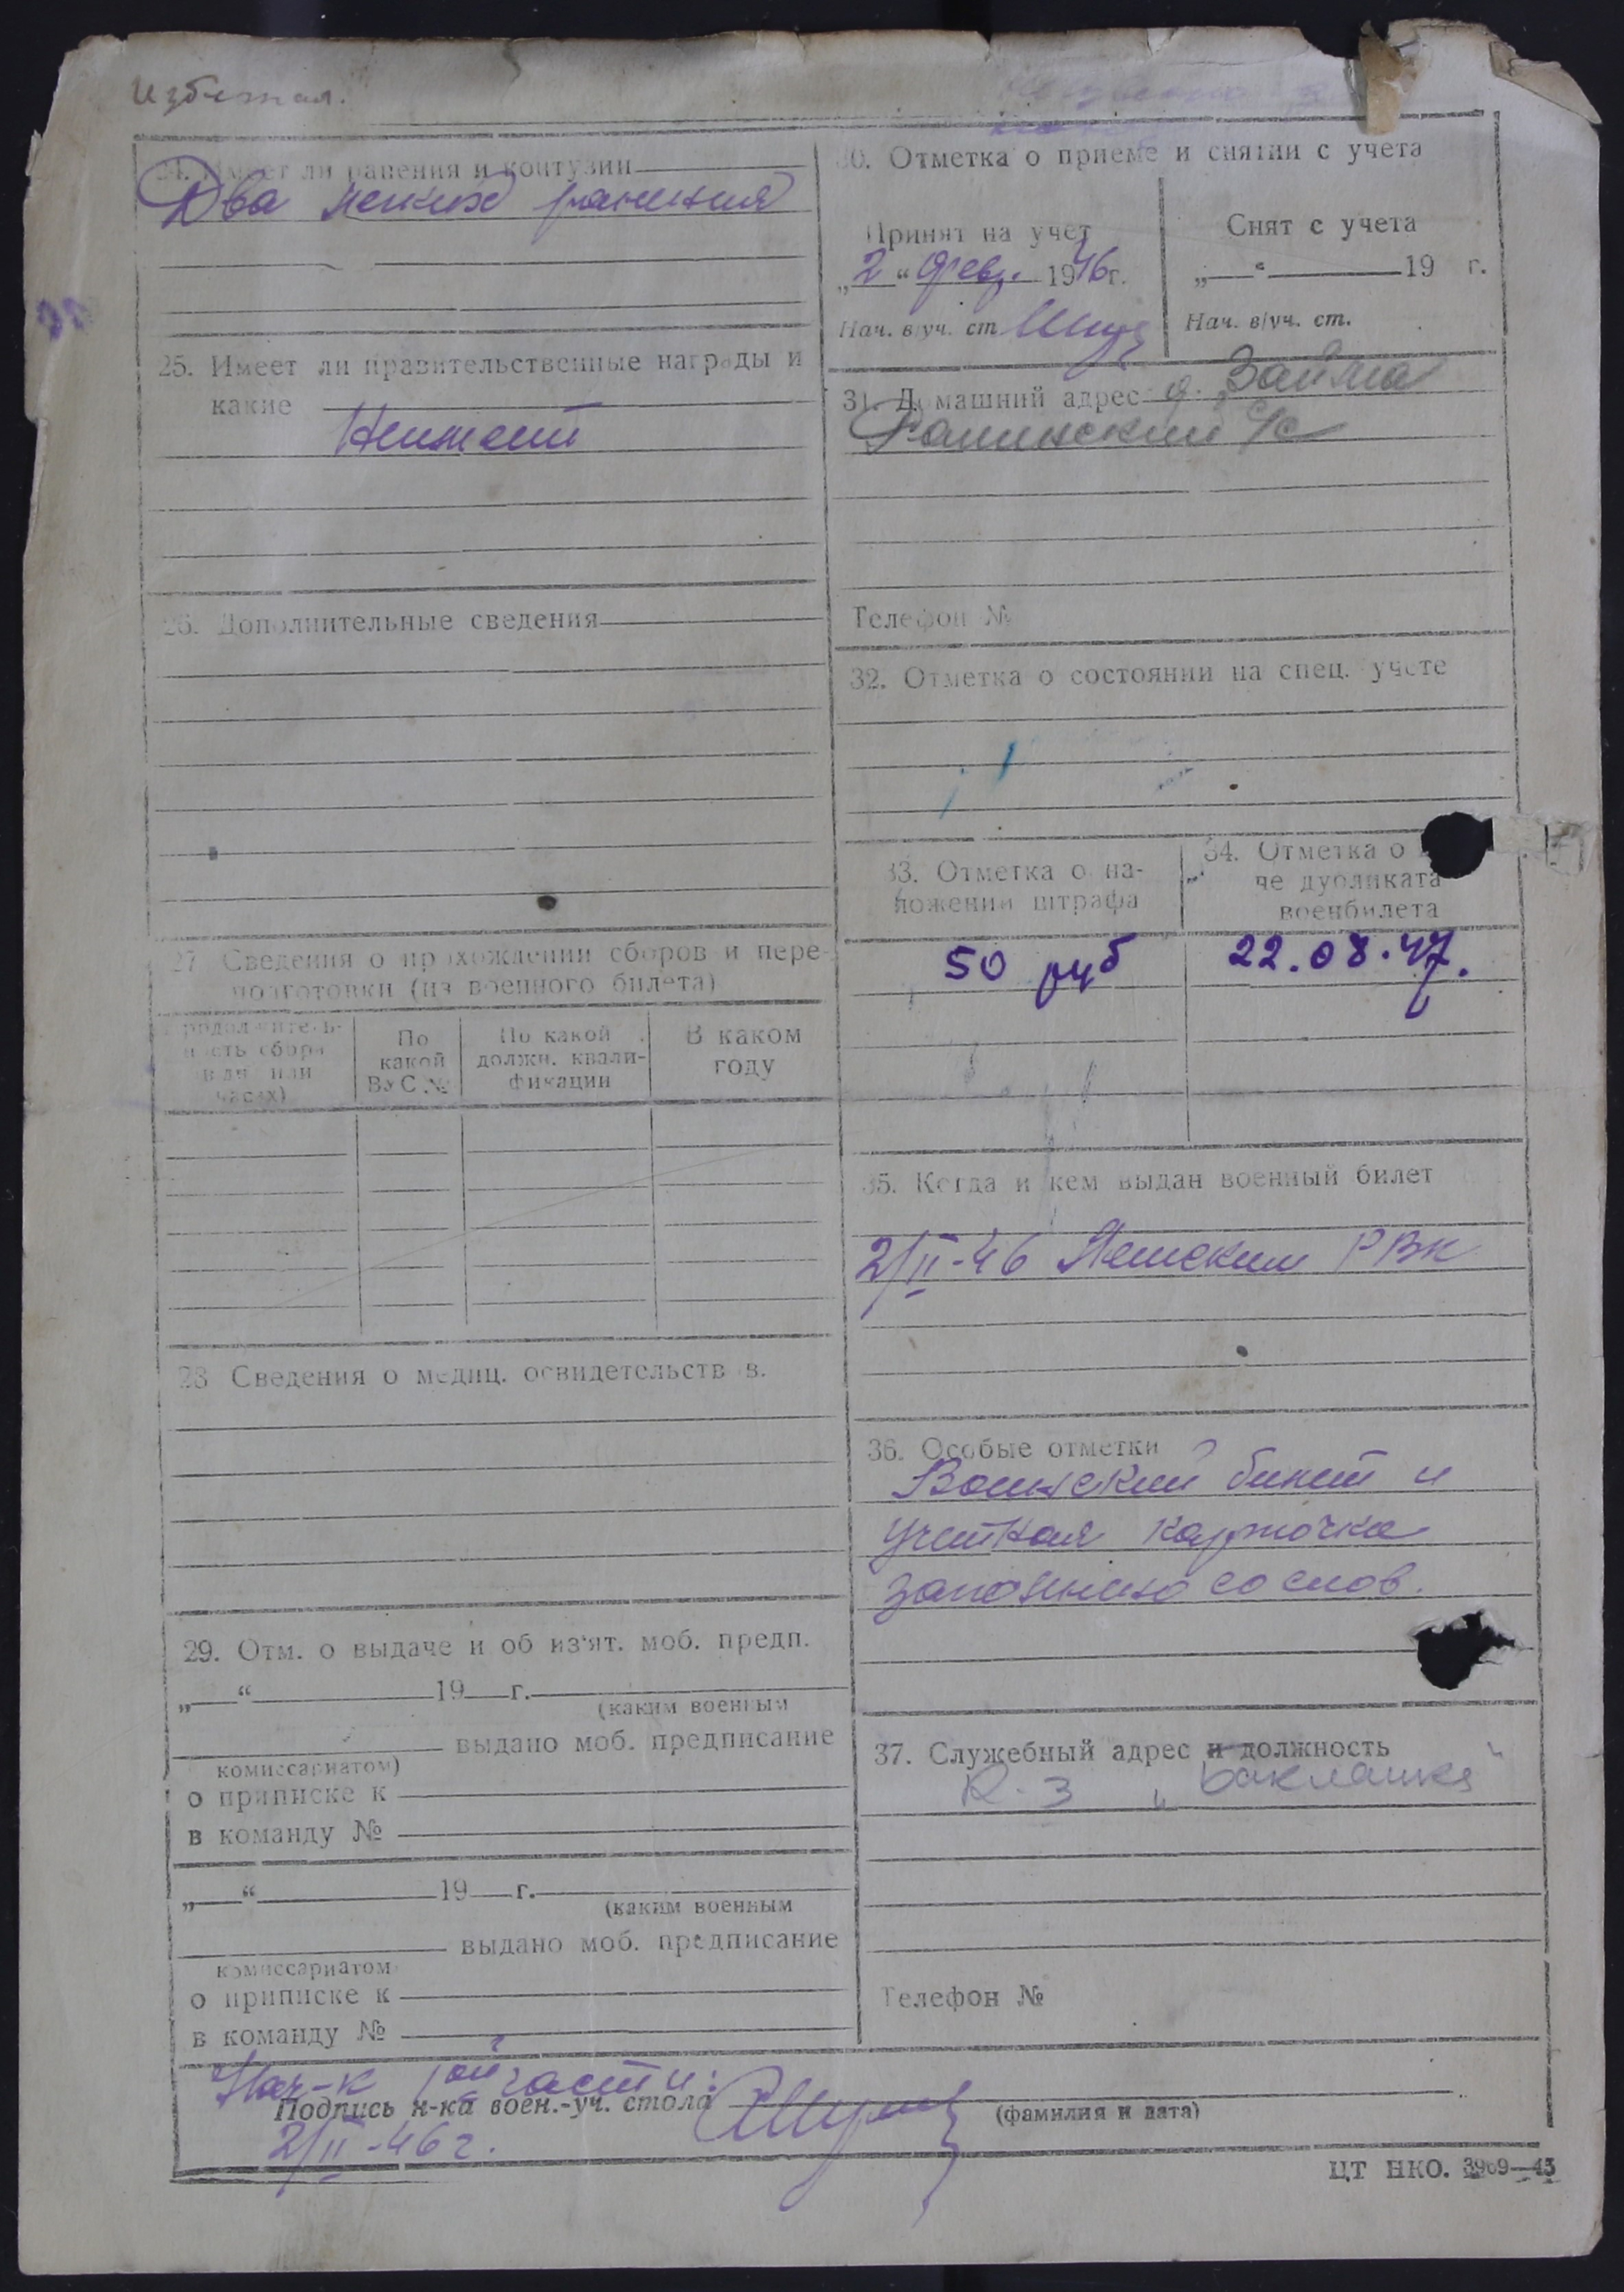 24. Имеет ли ранения и контузии
Два легких ранения
25. Имеет ли правительственные награды и
какие
Неимеет
26. Дополнительные сведения
27 Сведения о прохождении сборов и пере-
подготовки (из военного билета)
Продолжитель-
ность сбора
(в дн. или
часах)
По
какой
ВУС №
По какой
должн. квали-
фикации
В каком
году
28 Сведения о медиц. освидетельств в.
29. Отм. о выдаче и об из'ят. моб. предп.
„ “ 19 г.
(каким военным
выдано моб. предписание
комиссариатом)
о приписке к
в команду №
„ “ 19 г.
(каким военным
выдано моб. предписание
комиссариатом
о приписке к
в команду №
30. Отметка о приеме и снятии с учета
Принят на учет
„2“ февр. 1946г.
Нач. в/уч. ст
Снят с учета
„ “ 19 г.
Нач. в/уч. ст.
31. Домашний адрес д. Займа
с/с
Телефон №
32. Отметка о состоянии на спец. учете
33. Отметка о на-
ложении штрафа
50 руб
34. Отметка о
че дубликата
военбилета
22.08.47.
35. Когда и кем выдан военный билет
2/II-46 РВК
36. Особые отметки
Воинский билет и
учетная карточка
заполнено со слов.
37. Служебный адрес и должность
К-з
Телефон №
Нач-к части:
Подпись н-ка воен.-уч. стола
(фамилия и дата)
2/II-46г.
ЦТ НКО. 3969—45